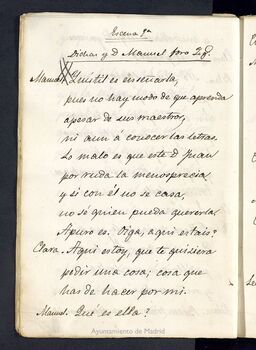 Escena 9ª
Dichos y d Manuel foro
Manuel. Inutil es enseñarla,
pues no hay modo de que aprenda
apesar de sus maestros,
ni aun á conocer las letras.
Lo malo es que este d Juan
por ruda la menosprecia
y si con él no se casa,
no sé quien pueda quererla.
Apuro es. Oiga, aqui estais?
Clara. Aqui estoy, que te quisiera
pedir una cosa; cosa que
has de hacer por mi.
Manuel. Que es ella?
Ayuntamiento de Madrid